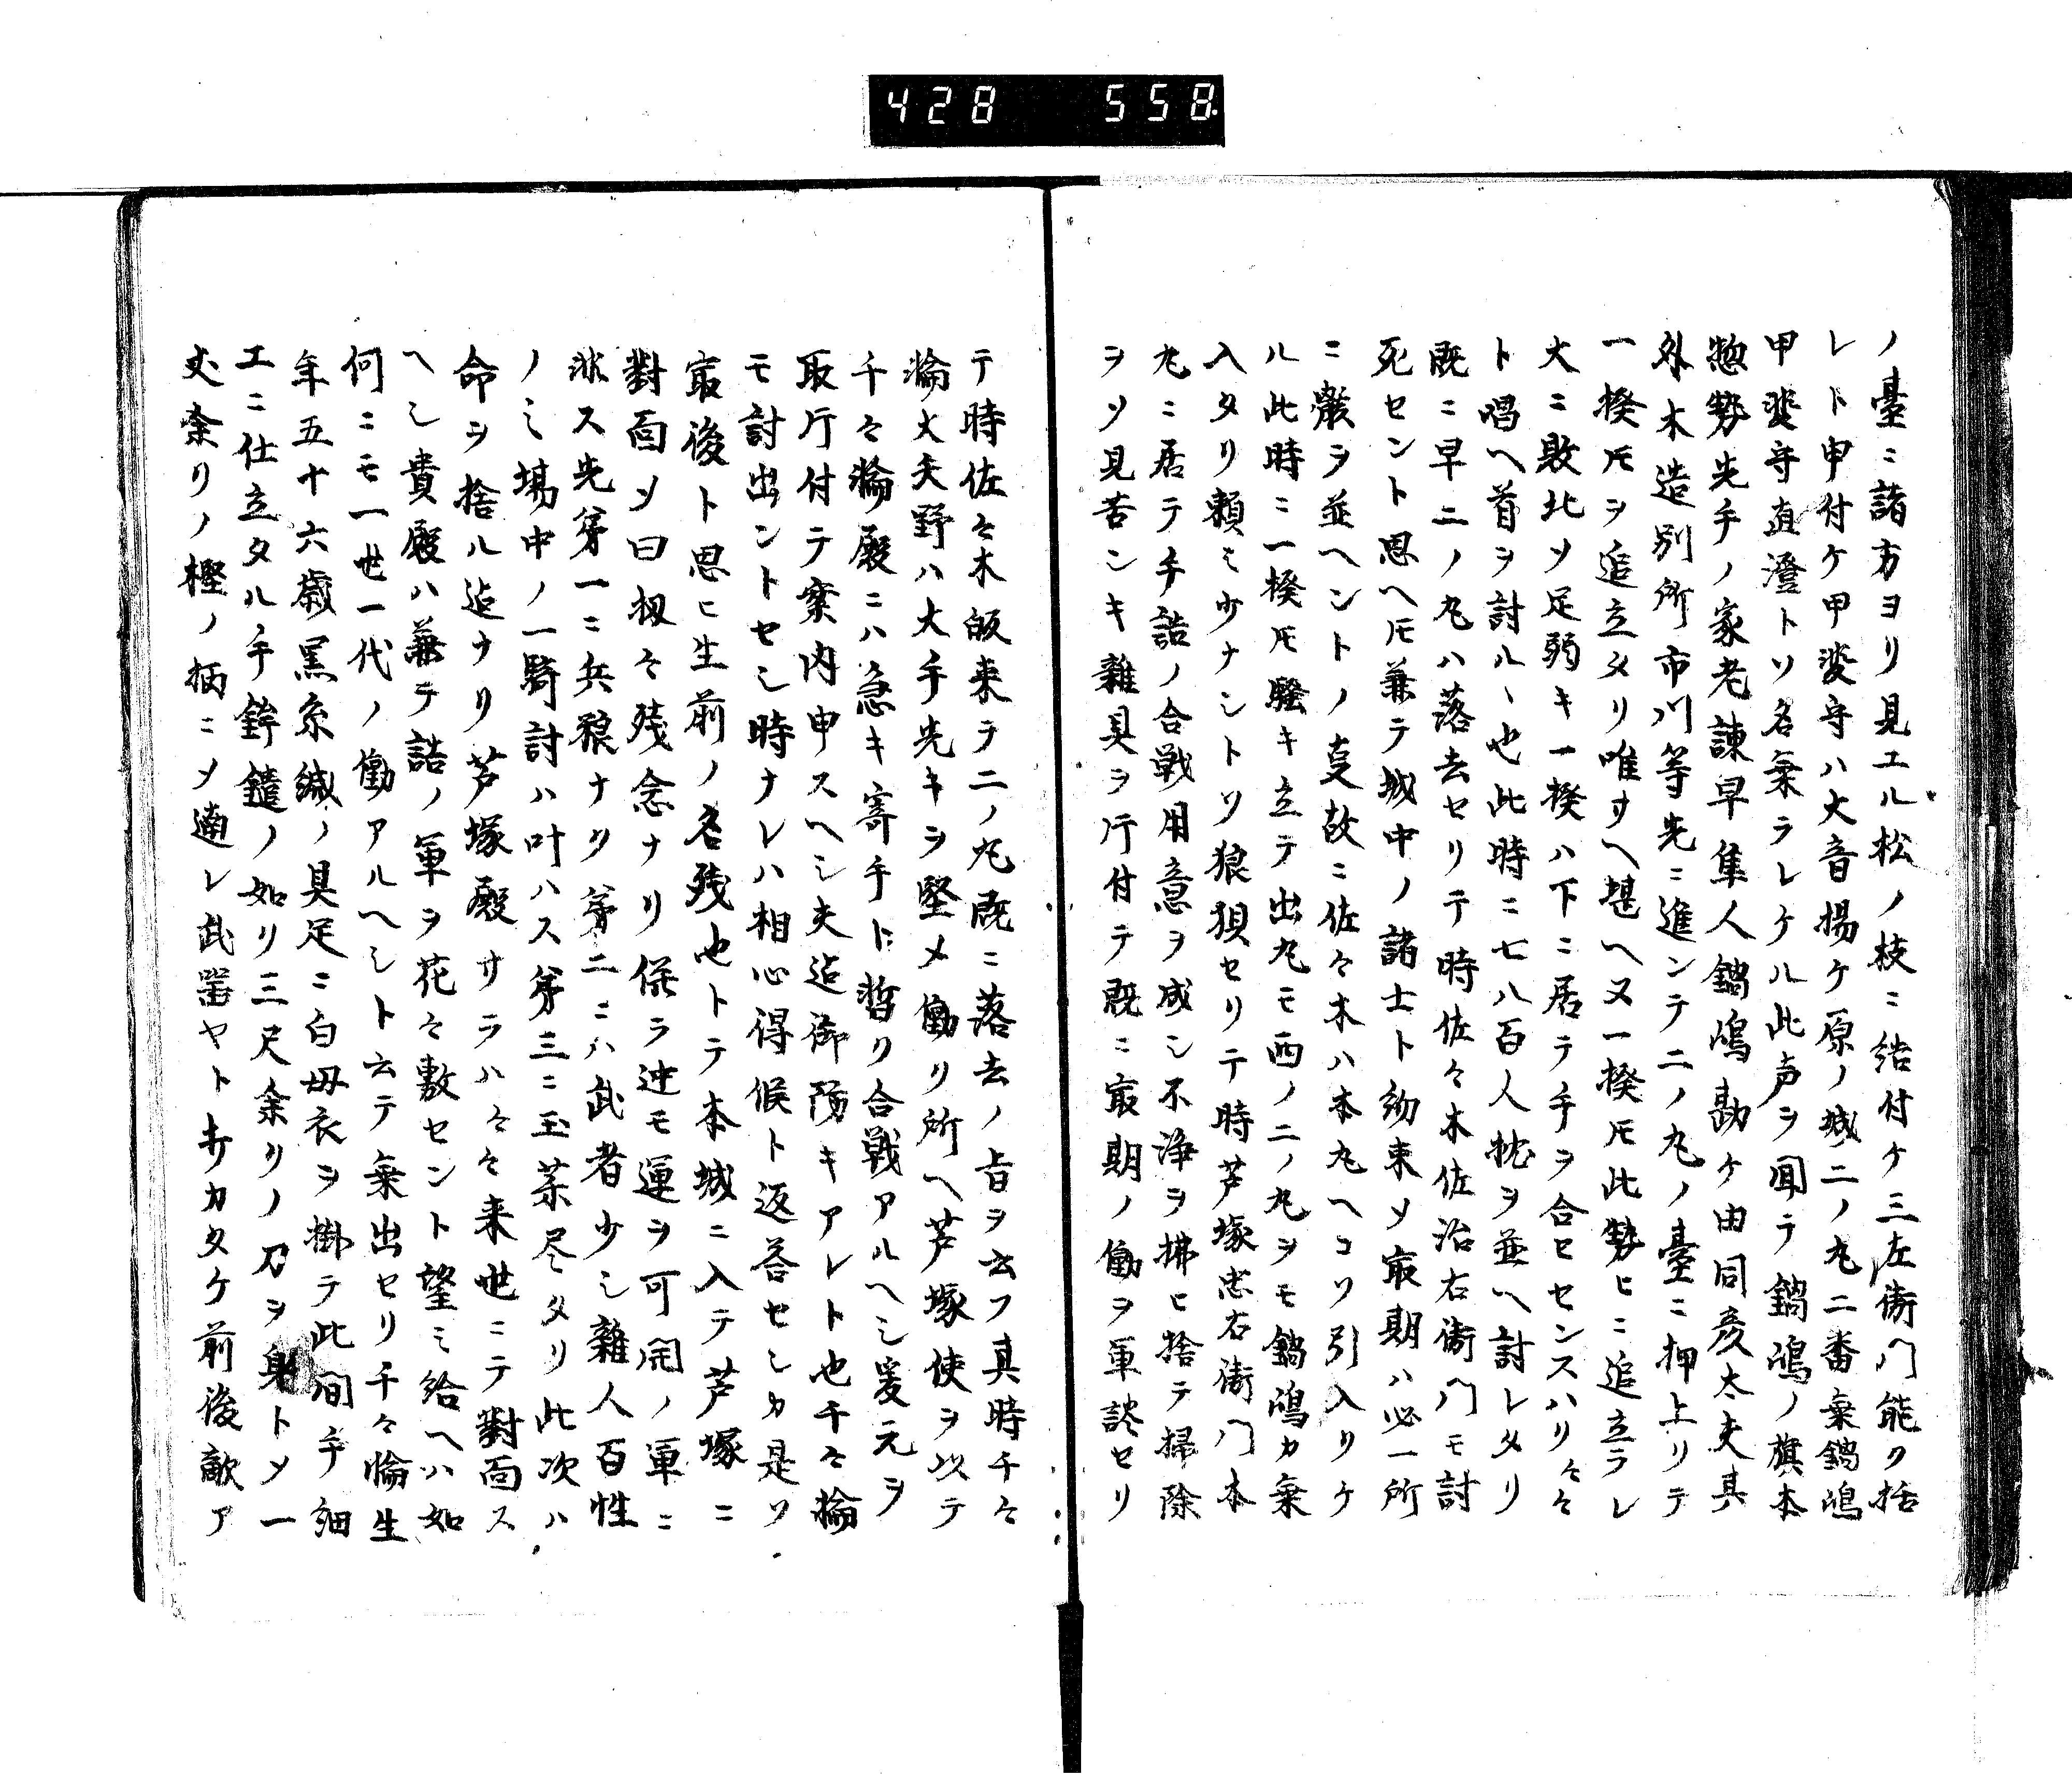 428 558
ノ臺ニ諸方ヨリ見エル松ノ枝ニ結付ケ三左衛門能ク括
レト申付ケ甲斐守ハ大音揚ケ原ノ城二ノ丸二番乗鍋嶋
甲斐守直澄トソ名乗ラレケル此声ヲ聞テ鍋嶋ノ旗本
惣勢先手ノ家老諌早隼人鍋嶋勘ケ由同彦太夫其
外木造別所市川等先ニ進ンテ二ノ丸ノ臺ニ押上リテ
一揆𪜈ヲ追立メリ唯サヘ堪ヘ又一揆𪜈此勢ヒニ追立ラレ
大ニ敗北ソ足弱キ一揆ハ下ニ居テ手ヲ合ヒセンスハリ々々
ト唱ヘ首ヲ討ルヽ也此時ニ七八百人枕ヲ並ヘ討レタリ
既ニ早二ノ丸ハ落去セリテ時佐々木佐治右衛門モ討
死セント思ヘ𪜈兼テ城中ノ諸士ト約束ソ最期ハ必一所
ニ巌ヲ並ヘントノ支故ニ佐々木ハ本丸ヘコソ引入リケ
ル此時ニ一揆𪜈騒キ立テ出丸モ西ノ二ノ丸ヲモ鍋嶋カ乗
入タリ頼ミ少ナシトソ狼狽セリテ時芦塚忠右衛門本
丸ニ居テ手詰ノ合戦用意ヲ成シ不浄ヲ拂ヒ捨テ掃除
ヲソ見苦ンキ雑具ヲ片付テ既ニ最期ノ働ヲ軍談セリ
テ時佐々木皈来テ二ノ丸既ニ落去ノ旨ヲ云フ真時千々
輪大夫野ハ大手先キヲ堅メ働リ所ヘ芦塚使ヲ以テ
千々輪殿ニハ急キ寄手ト暫リ合戦アルヘシ爰元ヲ
取片付テ案内申スヘシ夫迄御防キアレト也千々輪
モ討出ントセシ時ナレハ相心得候ト返答セシカ是ソ
最後ト思ヒ生前ノ名残也トテ本城ニ入テ芦塚ニ
對面ソ曰扨々残念ナリ併ラ迚モ運ヲ可開ノ軍ニ
非ス先第一ニ兵粮ナク第二ニハ武者少シ雑人百性
ノミ場中ノ一騎討ハ叶ハス第三ニ玉薬尽タリ此次ハ
命ヲ捨ル迄ナリ芦塚殿サラハ々々来世ニテ對面ス
ヘシ貴殿ハ兼テ詰ノ軍ヲ花々敷セント望ミ給ヘハ如
何ニモ一世一代ノ働アルヘシト云テ乗出セリ千々輪生
年五十六歳黒糸縅ノ具足ニ白母衣ヲ掛テ此間手細
エニ仕立タル手鉾鑓ノ如リ三尺余リノ刀ヲ身トメ一
丈余リノ樫ノ柄ニメ遖レ武噐ヤト打カタケ前後敵ア